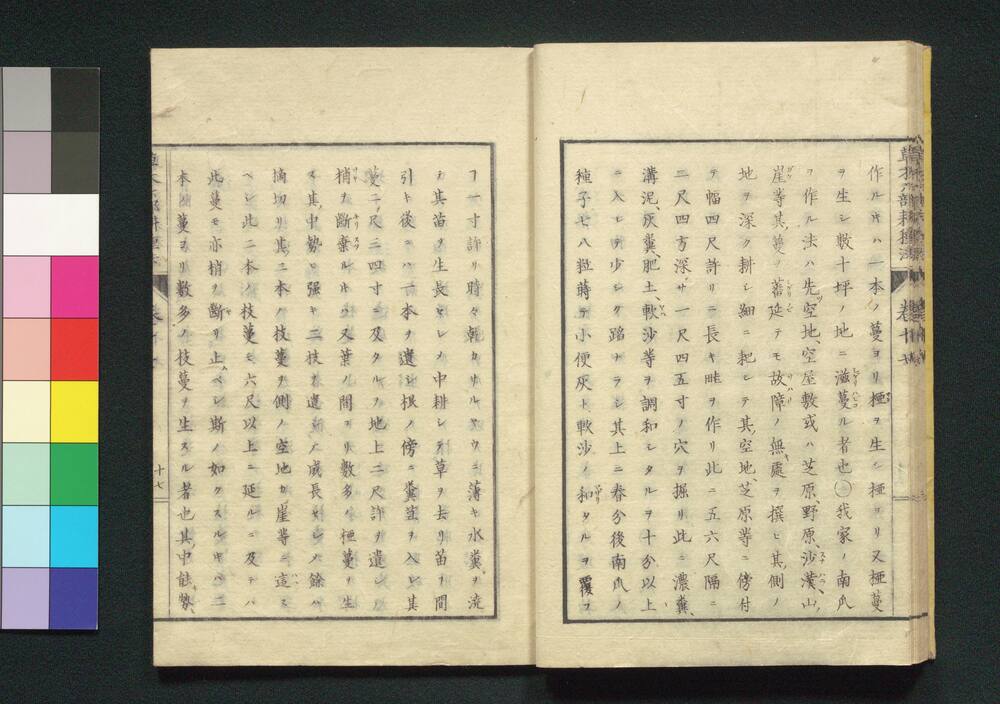 作ル片ハ一本ノ蔓ヨリ極ヲ生シ極ヨリ又極蔓
ヲ生シ數十坪ノ地ニ滋蔓ル者也○我家ノ南瓜
ヲ作ル法ハ先空地、空屋敷或ハ芝原、野原、沙漠、山、
崖等其蔓ノ蕃延テモ故障ノ無處ヲ撰ヒ其側ノ
地ヲ深ク耕シ細ニ耙シテ其空地、芝原等ニ傍付
テ幅四尺許リニ長キ畦ヲ作リ此ニ五六尺隔ニ
二尺四方深サ一尺四五寸ノ穴ヲ掘リ此ニ濃糞、
溝泥、灰糞、肥土、軟沙等ヲ調和シタルヲ十分以上
ニ入レテ少シク踏ナラシ其上ニ春分後南瓜ノ
種子七八粒蒔テ小便灰ト軟沙ノ和タルヲ覆フ
草木六部耕種法 卷十
フ一寸許リ時々乾カサルヤウニ薄キ水糞ヲ流
テ其苗ヲ生長セシメ中耕シテ草ヲ去リ苗ヲ間
引キ後ニハ一本ヲ遺シ根ノ傍ニ糞苴ヲ入レ其
蔓二尺三四寸ニ及タルヲ地上二尺許ヲ遺シ
梢ヲ斷棄ルトキハ又葉ノ間ヨリ數多ノ極蔓ヲ生
ス其中勢ヒ強キ二枝ヲ遺シ成長セシメ餘ハ
摘切リ其二本ノ枝蔓ヲ側ノ空地カ崖等ニ這ス
ヘシ此二本ノ枝蔓モ六尺以上ニ延ルニ及テハ
此蔓モ亦梢ヲ斷リ止ヘシ斯ノ如クスルトキハ二
本ノ蔓ヨリ數多ノ枝蔓ヲ生スル者也其中壯勢、
十七